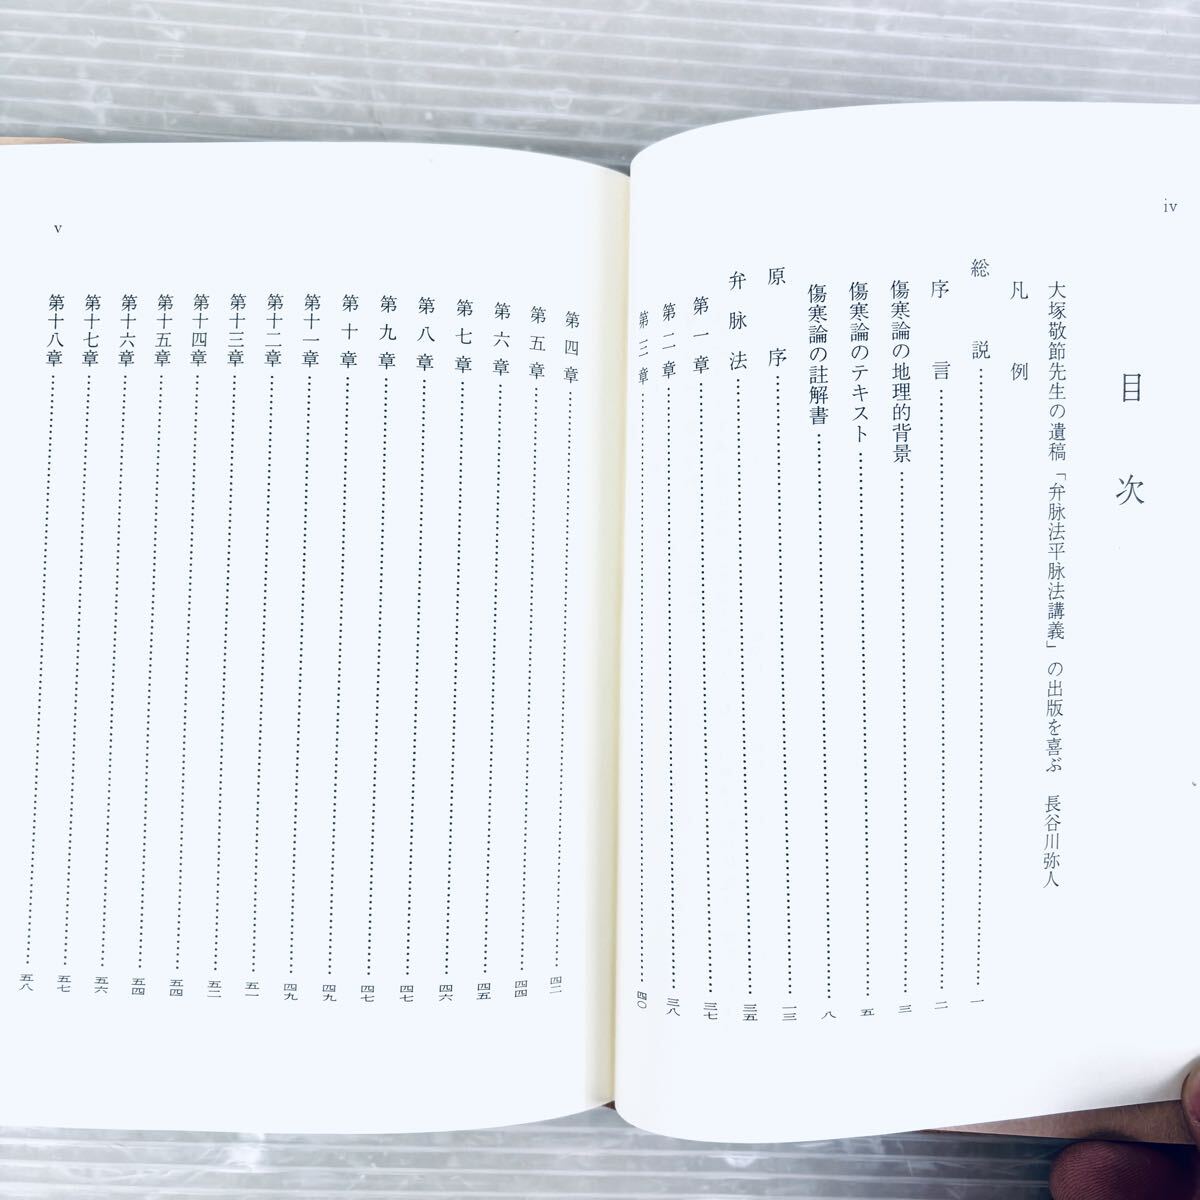 iv
目次
大塚敬節先生の遺稿「弁脉法平脉法講義」の出版を喜ぶ 長谷川弥人
凡例
総説……一
序言……二
傷寒論の地理的背景……三
傷寒論のテキスト……五
傷寒論の註解書……八
原序……一三
弁脉法……三五
第一章……三七
第二章……三八
第三章……四〇
v
第四章……四二
第五章……四四
第六章……四四
第七章……四五
第八章……四六
第九章……四七
第十章……四七
第十一章……四九
第十二章……四九
第十三章……五一
第十四章……五二
第十五章……五四
第十六章……五四
第十七章……五六
第十八章……五七
五八